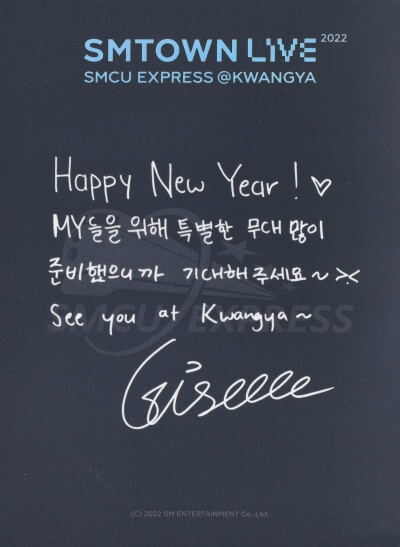 SMTOWN LIVE 2022
SMCU EXPRESS @KWANGYA
Happy New Year! ♡
MY들을 위해 특별한 무대 많이
준비했으니까 기대해주세요~ ><
See you at Kwangya~
SMCU EXPRESS
Giselle
(C) 2022 SM ENTERTAINMENT Co., Ltd.